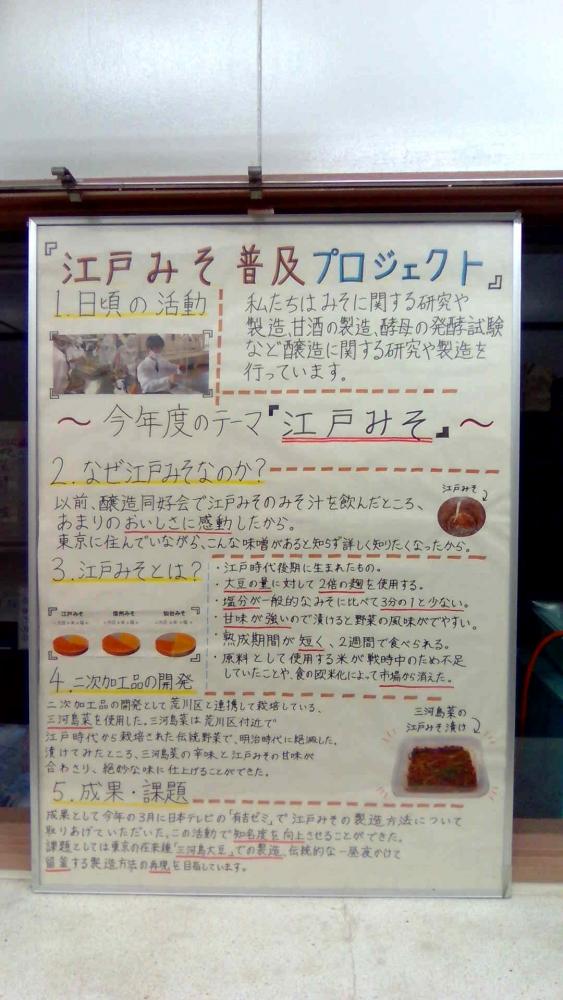 『江戸みそ 普及プロジェクト』
1.日頃の活動
私たちはみそに関する研究や
製造、甘酒の製造、酵母の発酵試験
など醸造に関する研究や製造を
行っています。
〜今年度のテーマ『江戸みそ』〜
2.なぜ江戸みそなのか?
江戸みそ
以前、醸造同好会で江戸みそのみそ汁を飲んだところ、
あまりのおいしさに感動したから。
東京に住んでいながら、こんな味噌があると知らず詳しく知りたくなったから。
3.江戸みそとは?
江戸みそ 信州みそ 仙台みそ
・江戸時代後期に生まれたもの。
・大豆の量に対して2倍の麹を使用する。
・塩分が一般的なみそに比べて3分の1と少ない。
・甘味が強いので漬けると野菜の風味がでやすい。
・熟成期間が短く、2週間で食べられる。
・原料として使用する米が戦時中のため不足
していたことや、食の欧米化によって市場から消えた。
4.二次加工品の開発
二次加工品の開発として荒川区と連携して栽培している、
三河島菜を使用した。三河島菜は荒川区付近で
江戸時代から栽培された伝統野菜で、明治時代に絶滅した。
漬けてみたところ、三河島菜の辛味と江戸みその甘味が
合わさり、絶妙な味に仕上げることができた。
三河島菜の
江戸みそ漬け
5.成果・課題
成果として今年の3月に日本テレビの「有吉ゼミ」で江戸みその製造方法について
取りあげていただいた。この活動で知名度を向上させることができた。
課題としては東京の在来種「三河島大豆」での製造、伝統的な一昼夜かけて
留釜する製造方法の再現を目指しています。